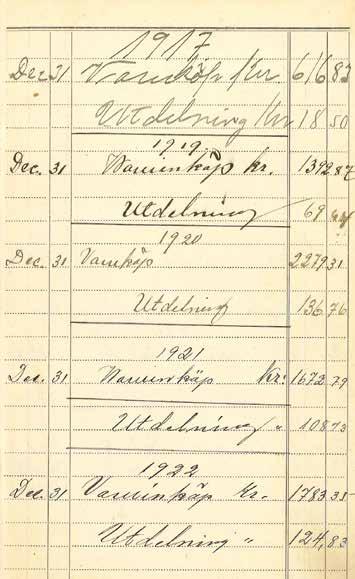 1917
Dec 31 Varuköp Kr 616 83
Utdelning Kr 18 50
1919.
Dec. 31 Varuinköp kr. 1392 87
Utdelning 69
1920
Dec. 31 Varuköp 2279 31
Utdelning 136 76
1921
Dec. 31 Varuinköp Kr: 1673 79
Utdelning " 108 73
1922
Dec. 31 Varuinköp Kr. 1783 35
Utdelning " 124,83